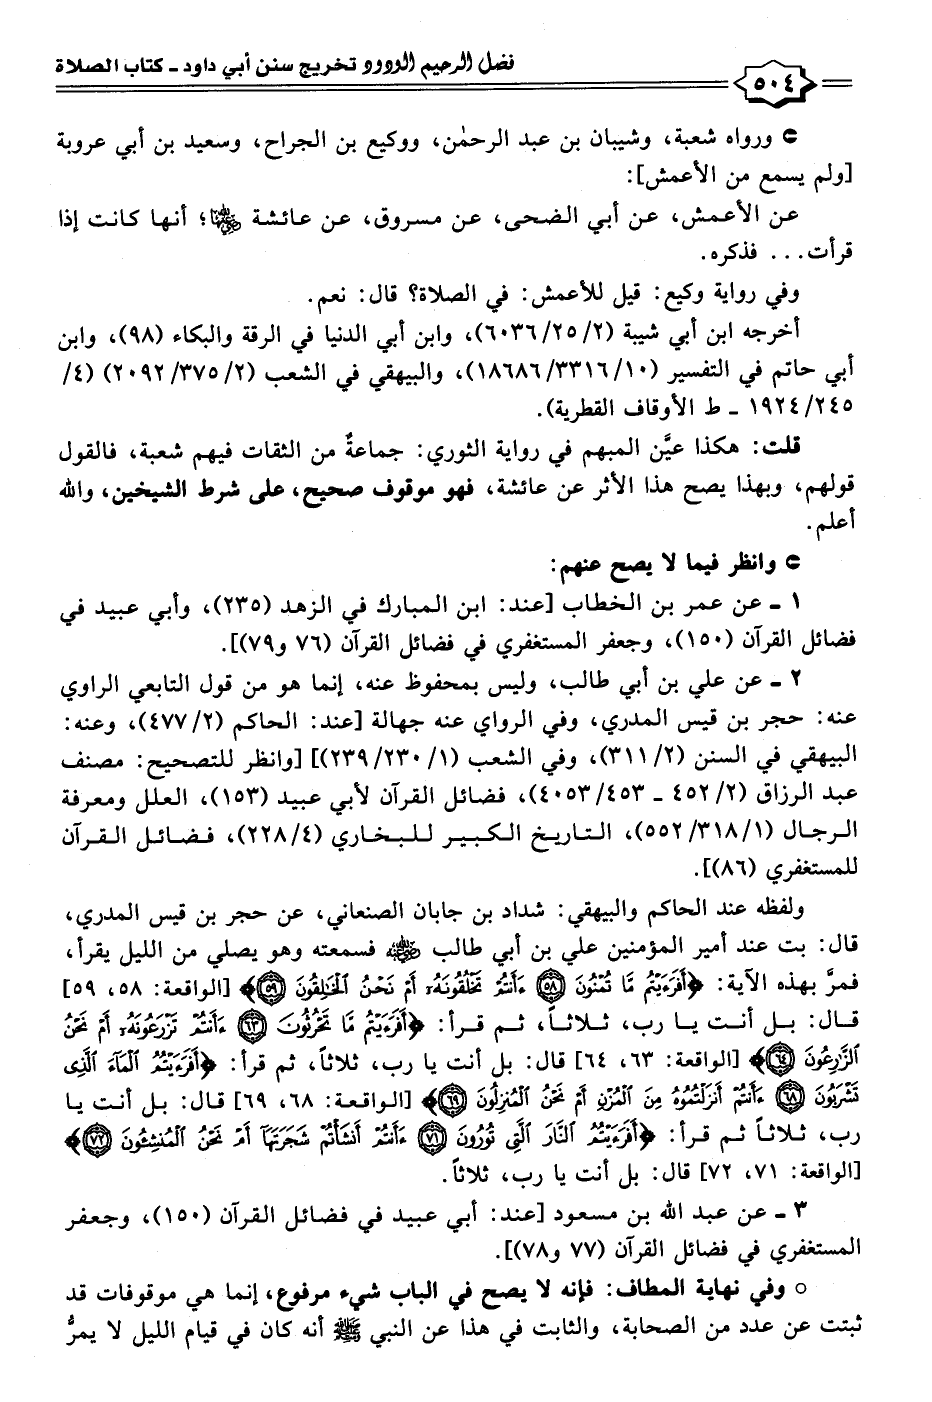 فضل الرحيم الودود تخريج سنن أبي داود ـ كتاب الصلاة
٥٠٤
ورواه شعبة، وشيبان بن عبد الرحمٰن، ووكيع بن الجراح، وسعيد بن أبي عروبة
[ولم يسمع من الأعمش]:
عن الأعمش، عن أبي الضحى، عن مسروق، عن عائشة رضي الله عنها؛ أنها كانت إذا
قرأت... فذكره.
وفي رواية وكيع: قيل للأعمش: في الصلاة؟ قال: نعم.
أخرجه ابن أبي شيبة (٢/٢٥/٦٠٣٦)، وابن أبي الدنيا في الرقة والبكاء (٩٨)، وابن
أبي حاتم في التفسير (١٠/٣٣١٦/١٨٦٨٦)، والبيهقي في الشعب (٢/٣٧٥/٢٠٩٢) (٤/
٢٤٥/١٩٢٤ ـ ط الأوقاف القطرية).
قلت: هكذا عيَّن المبهم في رواية الثوري: جماعةٌ من الثقات فيهم شعبة، فالقول
قولهم، وبهذا يصح هذا الأثر عن عائشة، فهو موقوف صحيح، على شرط الشيخين، والله
أعلم.
وانظر فيما لا يصح عنهم:
١ ـ عن عمر بن الخطاب [عند: ابن المبارك في الزهد (٢٣٥)، وأبي عبيد في
فضائل القرآن (١٥٠)، وجعفر المستغفري في فضائل القرآن (٧٦ و٧٩)].
٢ ـ عن علي بن أبي طالب، وليس بمحفوظ عنه، إنما هو من قول التابعي الراوي
عنه: حجر بن قيس المدري، وفي الرواي عنه جهالة [عند: الحاكم (٢/٤٧٧)، وعنه:
البيهقي في السنن (٢/٣١١)، وفي الشعب (١/٢٣٠/٢٣٩)] [وانظر للتصحيح: مصنف
عبد الرزاق (٢/٤٥٢ ـ ٤٥٣/٤٠٥٣)، فضائل القرآن لأبي عبيد (١٥٣)، العلل ومعرفة
الرجال (١/٣١٨/٥٥٢)، التاريخ الكبير للبخاري (٤/٢٢٨)، فضائل القرآن
للمستغفري (٨٦)].
ولفظه عند الحاكم والبيهقي: شداد بن جابان الصنعاني، عن حجر بن قيس المدري،
قال: بت عند أمير المؤمنين علي بن أبي طالب رضي الله عنه فسمعته وهو يصلي من الليل يقرأ،
فمرَّ بهذه الآية: ﴿أَفَرَءَيْتُم مَّا تُمْنُونَ ٥٨ ءَأَنتُمْ تَخْلُقُونَهُۥٓ أَمْ نَحْنُ ٱلْخَٰلِقُونَ ٥٩﴾ [الواقعة: ٥٨، ٥٩]
قال: بل أنت يا رب، ثلاثاً، ثم قرأ: ﴿أَفَرَءَيْتُم مَّا تَحْرُثُونَ ٦٣ ءَأَنتُمْ تَزْرَعُونَهُۥٓ أَمْ نَحْنُ
ٱلزَّٰرِعُونَ ٦٤﴾ [الواقعة: ٦٣، ٦٤] قال: بل أنت يا رب، ثلاثاً، ثم قرأ: ﴿أَفَرَءَيْتُمُ ٱلْمَآءَ ٱلَّذِى
تَشْرَبُونَ ٦٨ ءَأَنتُمْ أَنزَلْتُمُوهُ مِنَ ٱلْمُزْنِ أَمْ نَحْنُ ٱلْمُنزِلُونَ ٦٩﴾ [الواقعة: ٦٨، ٦٩] قال: بل أنت يا
رب، ثلاثاً ثم قرأ: ﴿أَفَرَءَيْتُمُ ٱلنَّارَ ٱلَّتِى تُورُونَ ٧١ ءَأَنتُمْ أَنشَأْتُمْ شَجَرَتَهَآ أَمْ نَحْنُ ٱلْمُنشِـُٔونَ ٧٢﴾
[الواقعة: ٧١، ٧٢] قال: بل أنت يا رب، ثلاثاً.
٣ ـ عن عبد الله بن مسعود [عند: أبي عبيد في فضائل القرآن (١٥٠)، وجعفر
المستغفري في فضائل القرآن (٧٧ و٧٨)].
○ وفي نهاية المطاف: فإنه لا يصح في الباب شيء مرفوع، إنما هي موقوفات قد
ثبتت عن عدد من الصحابة، والثابت في هذا عن النبي ﷺ أنه كان في قيام الليل لا يمرُّ